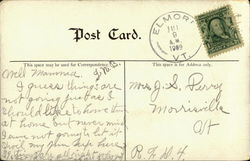 Post Card.
This space may be used for Correspondence.
This space is for Address only.
ELMORE
9
A.M.
1909
VT.
Well Mamma
I guess things are
not going just as I
should like to have them
at home but never mind
I am not going to let it
Mrs. J. S. Perry
Morrisville
Vt
R.F.D. 4